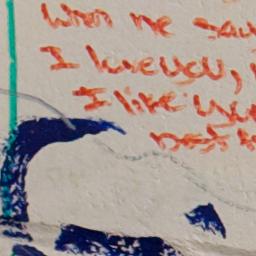 When he say
I love you,
I like you
best